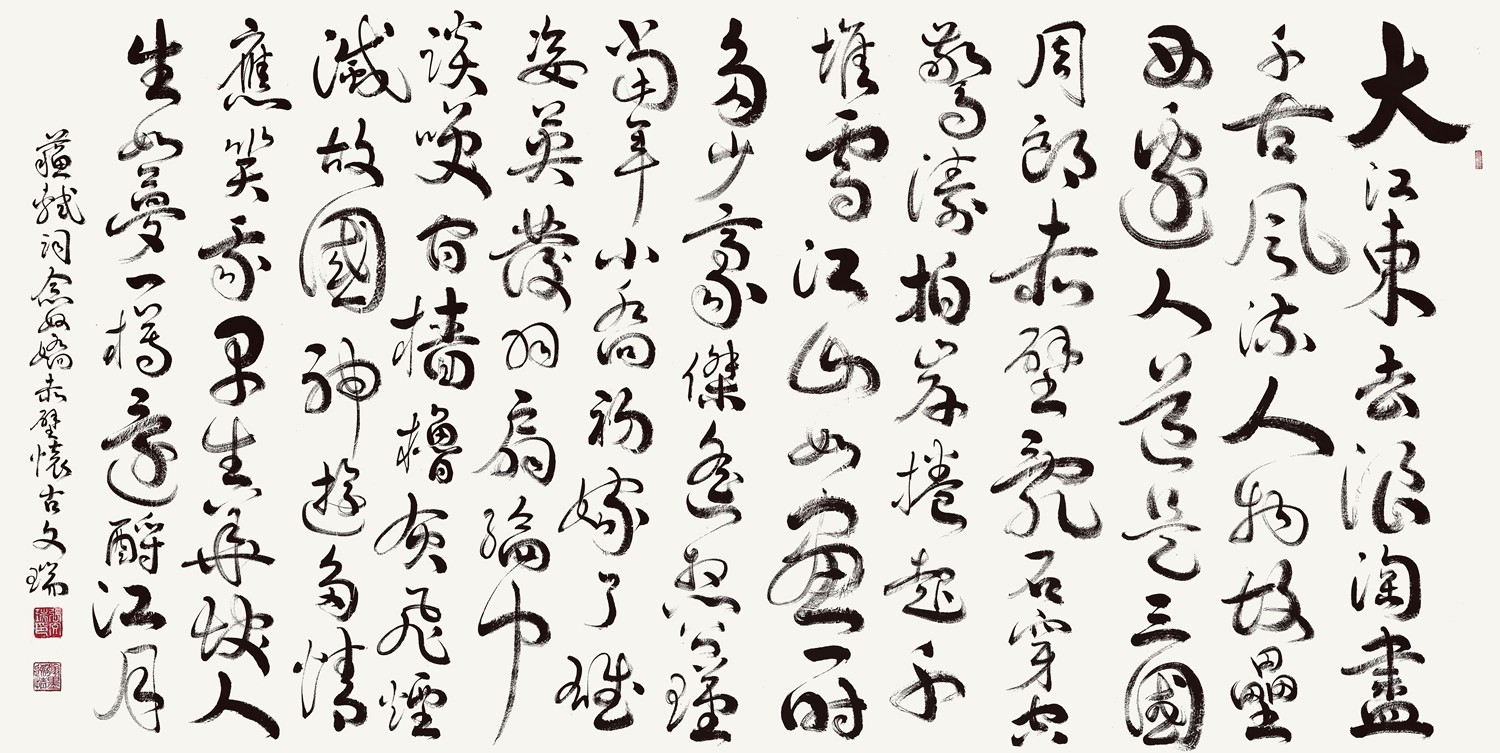 大江東去浪淘盡
千古風流人物故壘
西邊人道是三國
周郎赤壁亂石穿空
驚濤拍岸捲起千
堆雪江山如畫一時
多少豪傑遙想公瑾
當年小喬初嫁了雄
姿英發羽扇綸巾
談咲間檣櫓灰飛煙
滅故國神遊多情
應笑我早生華髮人
生如夢一樽還酹江月
蘇軾詞念奴嬌赤壁懷古文瑞